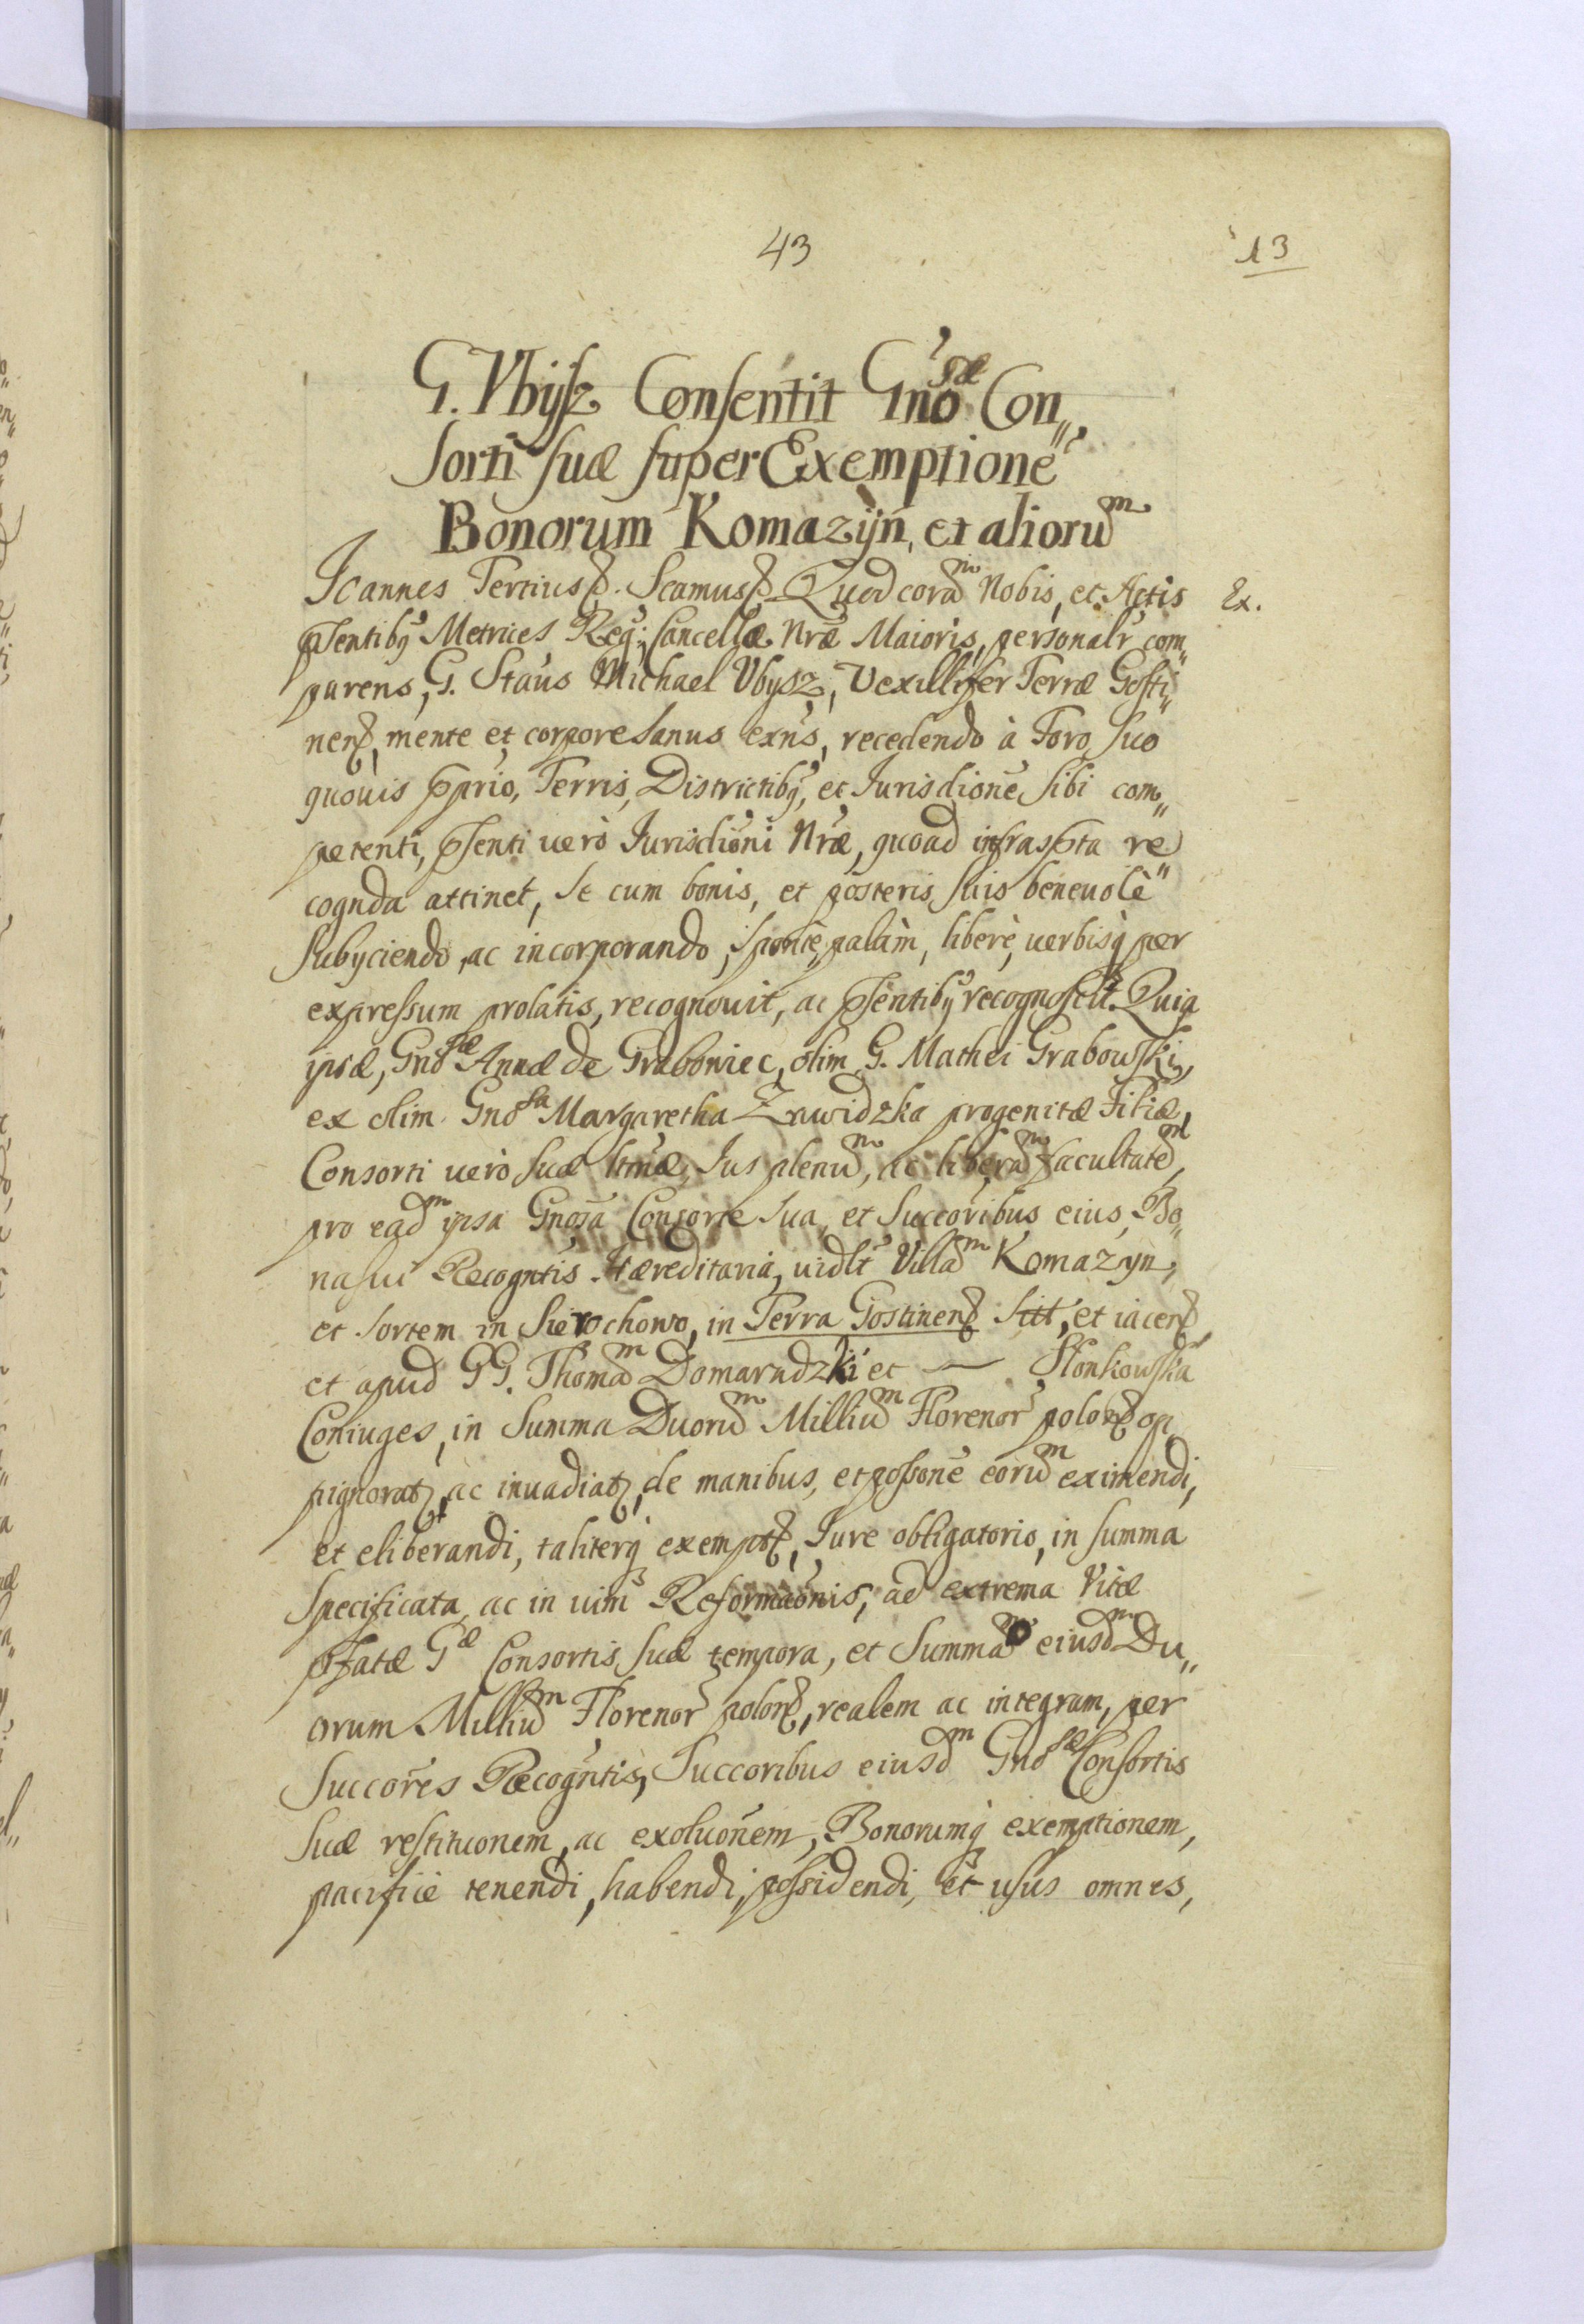 43
13
G. Vbysz Consentit Gnosæ Con„
sorti suæ super Exemptione
Bonorum Komazÿn, et alioru͠m
Ioannes Tertius etc. Scamus etc. Quod cora͠m Nobis, et Actis Ex.
p̃sentibq̃ Metrices Regñ: Cancellæ Nr̃æ Maioris, personalr̃ com„
parens, G. Stãus Michael Vbysz, Vexillifer Terræ Gosti„
nens̃, mente et corpore sanus exñs, recedendo à Foro suo
quovis p̃prio, Terris, Districtibq̃, et Iurisdiõne sibi com„
petenti, p̃senti verò Iurisdiõni Nr̃æ, quoad infrasp̃ta re„
cognda attinet, se cum bonis, et posteris suis benevolè
subyciendo, ac incorporando, spontè, palàm, liberè, verbisq̃ per
expressum prolatis, recognovit, ac p̃sentibq̃ recognoscit. Quia
ipsæ, Gnosæ Annæ de Graboniec, olim G. Mathei Grabowski,
ex olim Gnosa Margaretha Zawidzka progenitæ Filiæ,
Consorti verò suæ ltmæ, Ius plenu͠m, ac libera͠m facultate͠m,
pro eade͠m ipsa Gnosa Consorte sua, et Succoribus eius, Bo„
na sui Recogntis Hæreditaria, vidlt̃ Villa͠m Komazyn,
et sortem in Sierochowo, in Terra Gostinens̃ sitt, et iacens̃
et apud GG. Thoma͠m Domaradzki et — Slonkowska
Coniuges, in summa Duoru͠m Milliu͠m Florenor̃ polons̃ op„
pignorat, ac invadiat, de manibus, et possone eoru͠m eximendi,
et eliberandi, taliterq̃ exempt, Iure obligatorio, in summa
specificata, ac in vim Reformaõnis, ad extrema Vitæ
p̃fatæ Gæ Consortis suæ tempora, et summa͠m eiusd͠m Du„
orum Milliu͠m Florenor̃ polons̃, realem ac integram, per
Succores Recogntis, Succoribus eiusd͠m Gnosæ Consortis
suæ restituonem, ac exoluonem, Bonorumq̃ exemptionem,
pacificè tenendi, habendi, possidendi, et usus omnes,